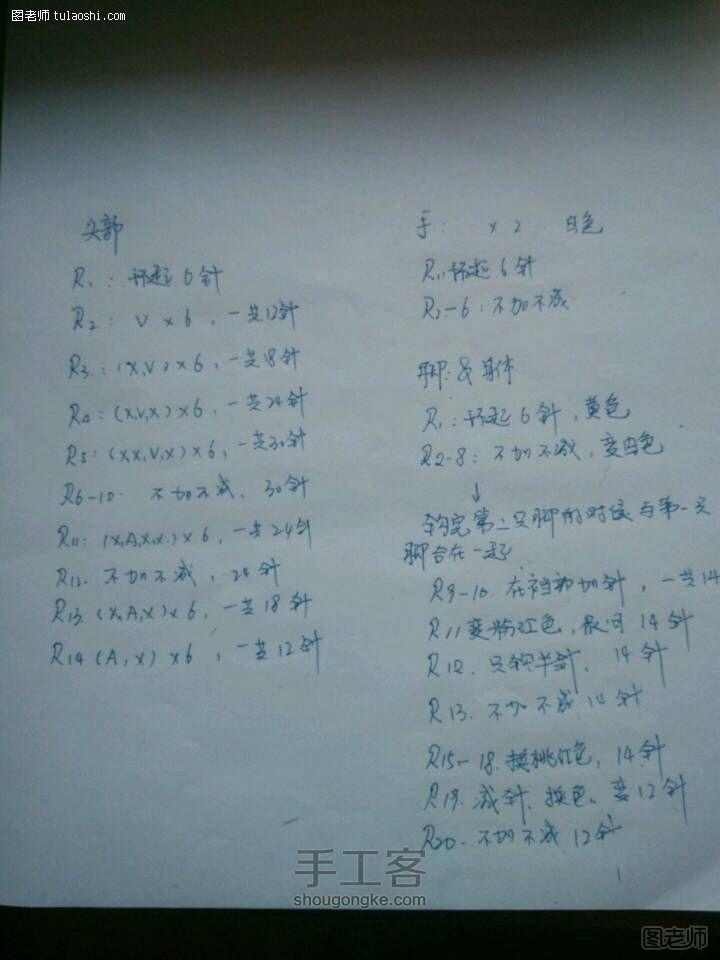 图老师 tulaoshi.com
头部
R1: 环起6针
R2: V×6, 一共12针
R3: (X,V)×6, 一共18针
R4: (X,V,X)×6, 一共24针
R5: (X,X,V,X)×6, 一共30针
R6-10. 不加不减, 30针
R11: (X,A,X,X)×6, 一共24针
R12. 不加不减, 24针
R13. (X,A,X)×6, 一共18针
R14 (A,X)×6, 一共12针
手: ×2 白色
R1: 环起6针
R2-6: 不加不减
脚: & 身体
R1: 环起6针, 黄色
R2-8: 不加不减, 变白色
↓
钩完第二只脚的时候与第一只
脚合在一起
R9-10. 在裆部加针, 一共14
R11 变粉红色, 14针
R12. 只钩半针, 14针
R13. 不加不减14针
R15-18. 换桃红色, 14针
R19. 减针、换色、变12针
R20. 不加不减12针
1
手工客
shougongke.com
图老师